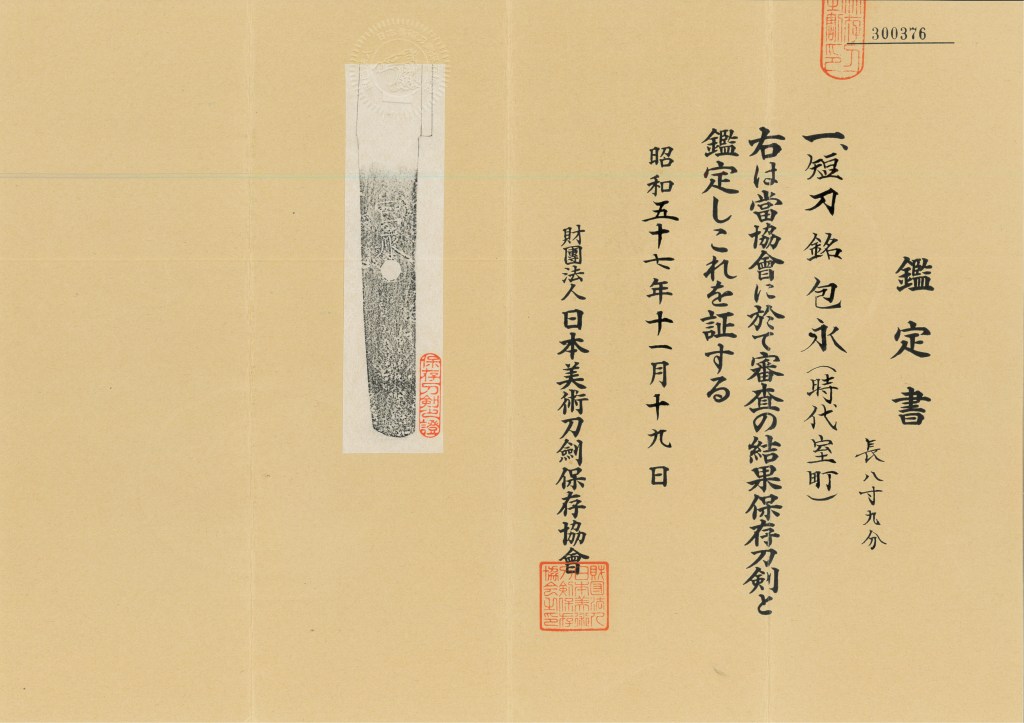 300376
鑑定書
長八寸九分
一、短刀銘包永(時代室町)
右は當協會に於て審査の結果保存刀剣と
鑑定しこれを証する
昭和五十七年十一月十九日
財團法人日本美術刀劍保存協會
保存刀剣之證